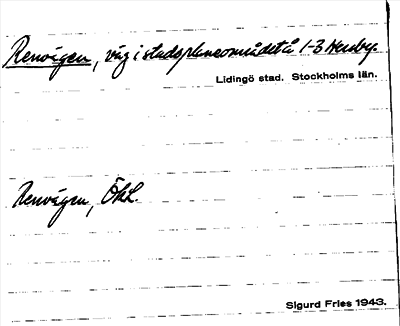 Renvägen, väg i stadsplaneområdet å 1-3 Hersby.
Lidingö stad. Stockholms län.
Renvägen, Ök.
Sigurd Fries 1943.